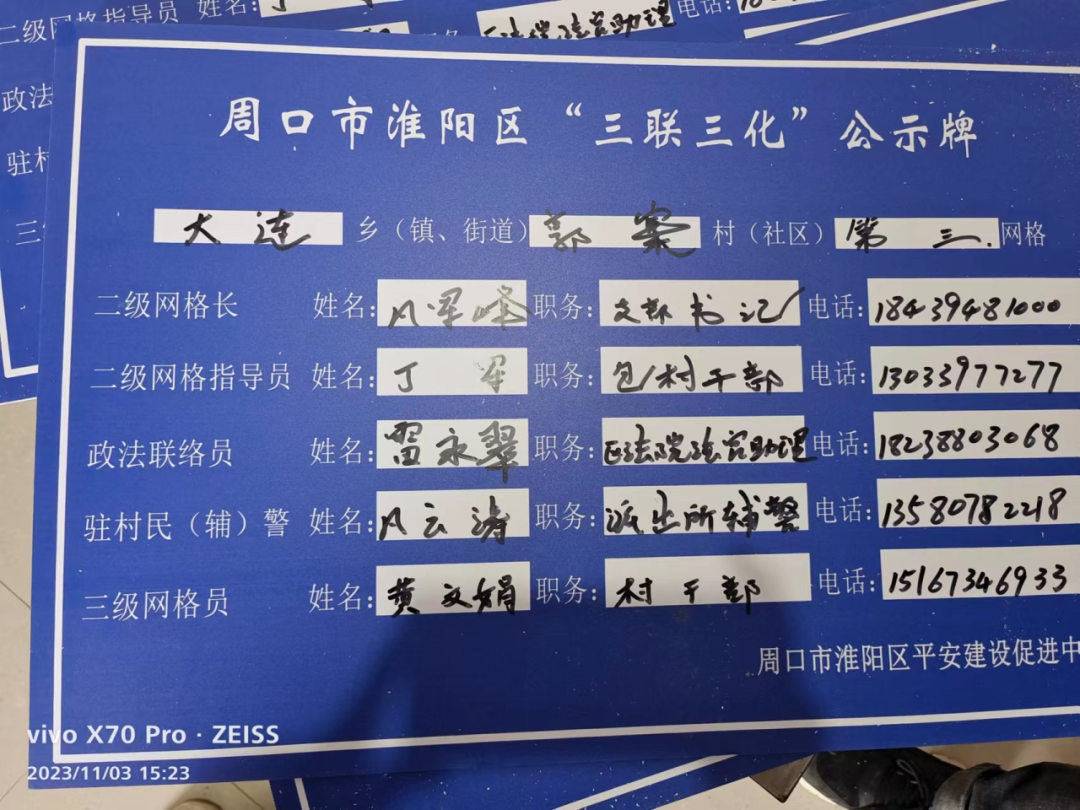 二级网格指导员 姓名:
电话:
区法院法官助理
政法
驻村
三
周口市淮阳区“三联三化”公示牌
大连 乡（镇、街道）郭寨 村（社区）第三 网格
二级网格长 姓名: 凡军峰 职务: 支部书记 电话: 18439481000
二级网格指导员 姓名: 丁军 职务: 包村干部 电话: 13033977277
政法联络员 姓名: 雷永翠 职务: 区法院法官助理 电话: 18238803068
驻村民（辅）警 姓名: 凡云涛 职务: 派出所辅警 电话: 13580782218
三级网格员 姓名: 黄文娟 职务: 村干部 电话: 15167346933
周口市淮阳区平安建设促进中
vivo X70 Pro · ZEISS
2023/11/03 15:23